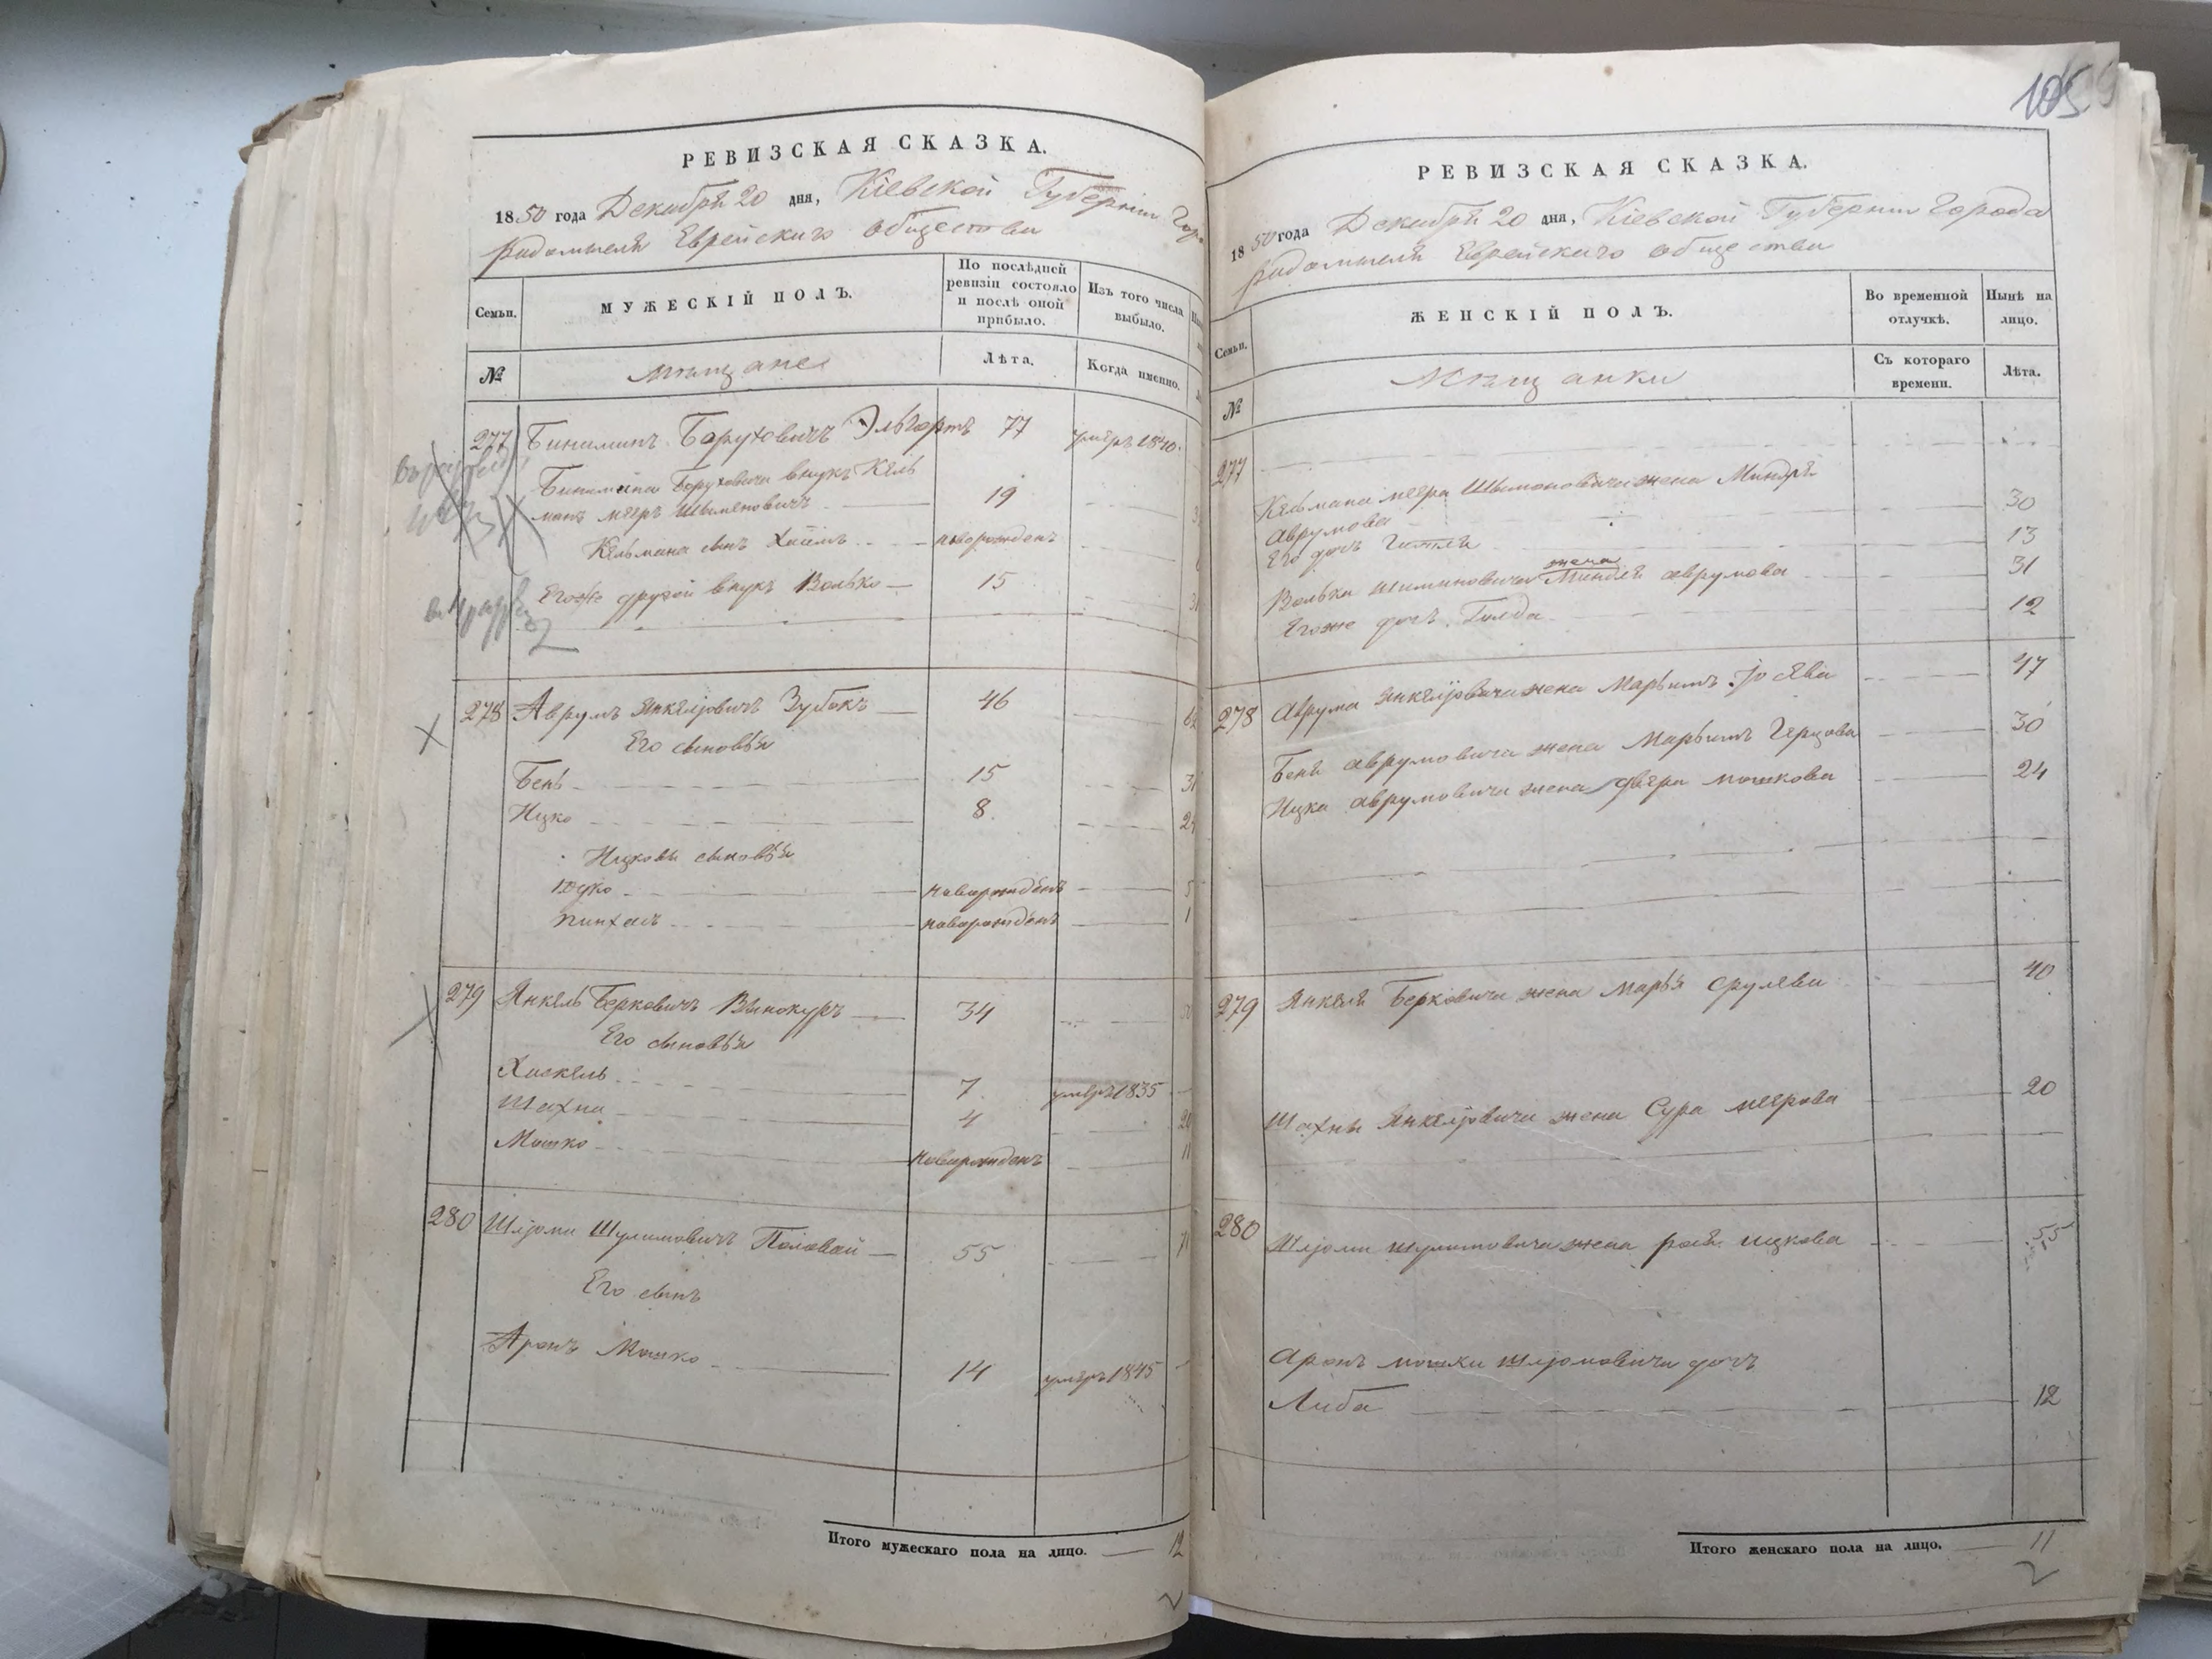 РЕВИЗСКАЯ СКАЗКА.
1850 года Декабря 20 дня, Кіевской Губерніи Гор
радомысля Еврейскаго общества
Семьи.
МУЖЕСКІЙ ПОЛЪ.
По послѣдней ревизіи состояло и послѣ оной прибыло.
Изъ того числа выбыло.
№
мѣщане
Лѣта.
Когда именно.
277 Биниминъ Боруховичъ Эльгортъ 77 умеръ 1840.
Бинимина Боруховича внукъ Кель
манъ мееръ Шимоновичъ 19
Кельмана сынъ Хаимъ новорожденъ
Егоже другой внукъ Волько 15
278 Аврумъ Янкелјовичъ Зубокъ 46
Его сыновья
Бень 15
Ицко 8
Ицковы сыновья
Юцко новорожденъ 5
Пинхасъ новорожденъ 1
279 Янкель Берковичъ Винокуръ 34
Его сыновья
Хаскель 7 умеръ 1835
Шахна 4
Мошко новорожденъ 11
280 Шлјома Шулимовичъ Половой 55
Его сынъ
Аронъ Мошко 14 умеръ 1845
Итого мужескаго пола на лицо. 12
105
РЕВИЗСКАЯ СКАЗКА.
1850 года Декабря 20 дня, Кіевской Губерніи Города
радомысля Еврейскаго общества
Семьи.
ЖЕНСКІЙ ПОЛЪ.
Во временной отлучкѣ.
Нынѣ на лицо.
№
Мѣщанки
Съ котораго времени.
Лѣта.
277
Кельмана меера Шимоновича жена Миндля
Аврумова 30
Его дочь Гитля 13
жена
Волька Шимоновича Миндля аврумова 31
Егоже дочь Голда 12
278 Аврума Янкелјовича жена Марьимъ Јосева 47
Беня аврумовича жена Марьимъ Герцова 30
Ицка аврумовича жена двера мошкова 24
279 Янкеля Берковича жена Марья срулева 40
Шахны Янкелјовича жена Сура меерова 20
280 Шлјомы шулимовича жена рося ицкова 55
Аронъ мошки шлјомовича дочь
Либа 12
Итого женскаго пола на лицо. 11